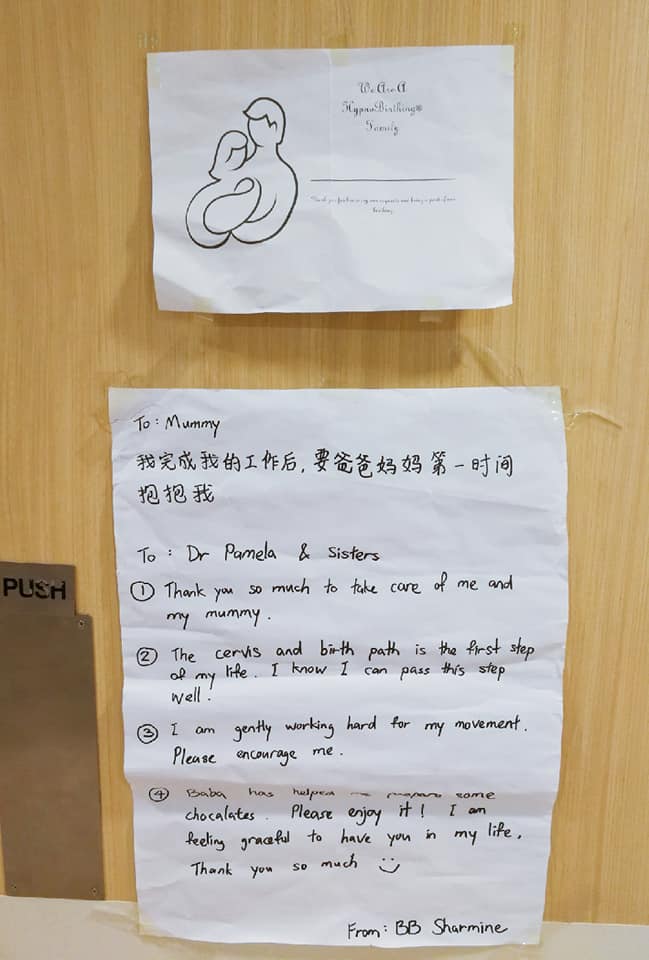 We Are A
HypnoBirthing®
Family
Thank you for honoring our requests and being a part of our
birthing
To: Mummy
我完成我的工作后, 要爸爸妈妈第一时间
抱抱我
To : Dr Pamela & Sisters
① Thank you so much to take care of me and
my mummy.
② The cervis and birth path is the first step
of my life. I know I can pass this step
well.
③ I am gently working hard for my movement.
Please encourage me.
④ Baba has helped me prepare some
chocalates. Please enjoy it! I am
feeling graceful to have you in my life.
Thank you so much
From: BB Sharmine
PUSH